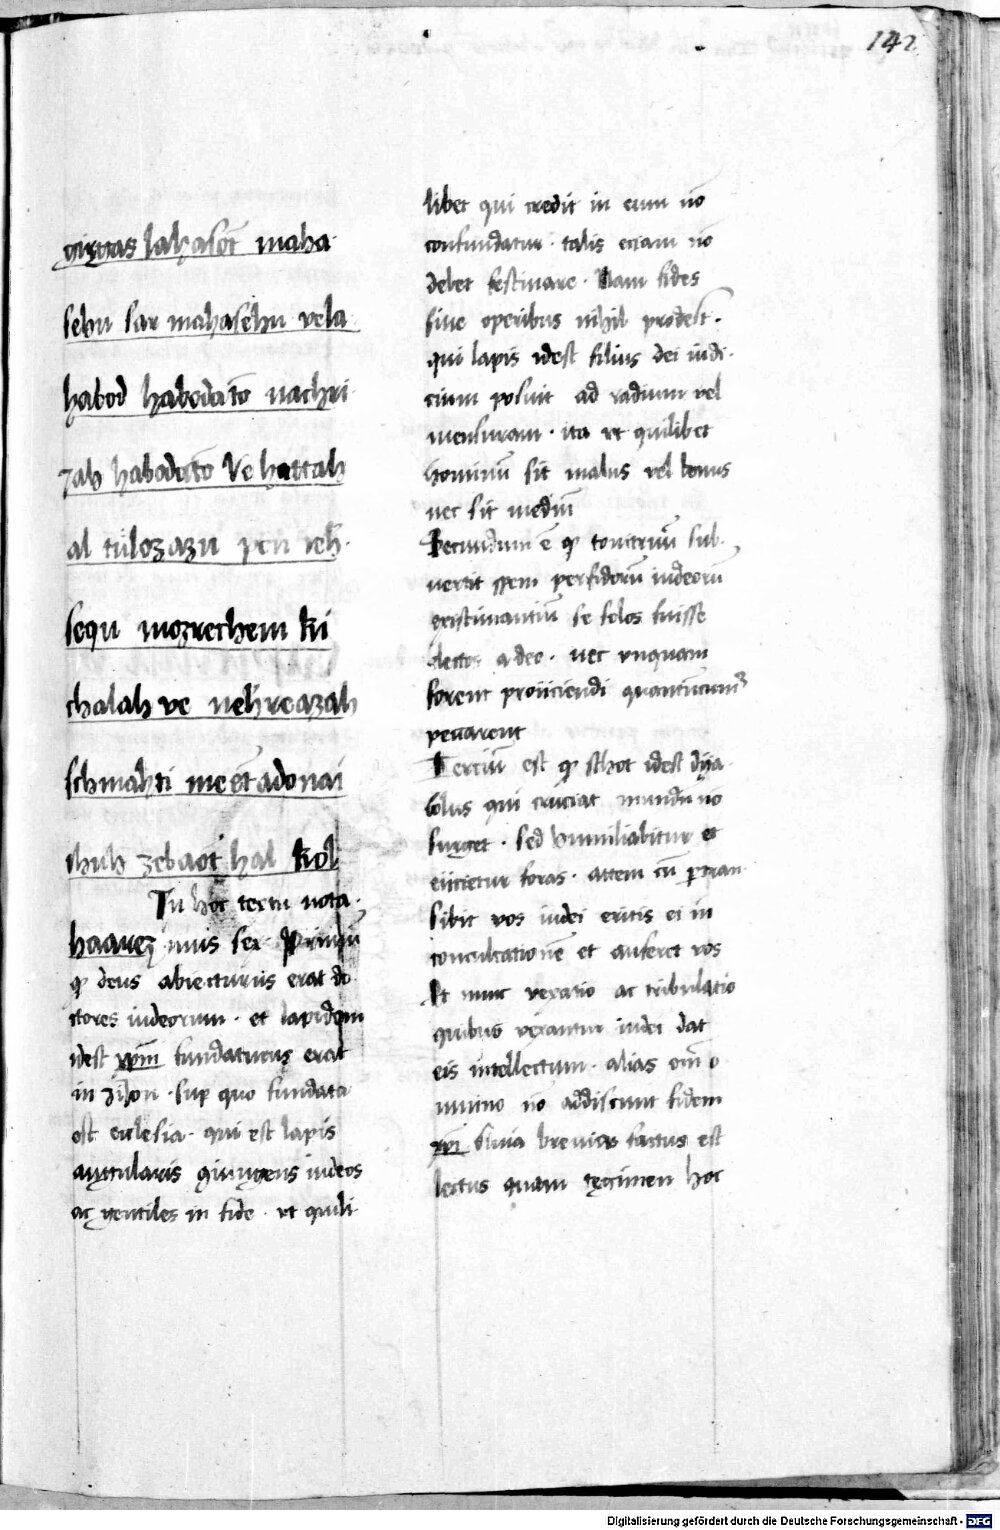 142
girgas lahasōt maha
sehu sar mahasehu vela
habod habodatō nachri
zah habodatō Ve hattah
al tiilozazu pen ieh
sequ mozrechem ki
chalah ve neh̄reazah
schmahti me ēt adonai
ihuh zebaōt hal kol
haarez
In hoc textu nota
mus sex Primū
qꝫ deus abiecturus erat do
ctores iudeorum · et lapidem
idest xpm̄ fundaturus erat
in zihon · sup quo fundata
est ecclesia · qui est lapis
angularis giungens iudeos
ac gentiles in fide · vt quili
libet qui credit in eum nō
confundatur · talis eciam nō
debet festinare · Nam fides
sine operibus nihil prodest ·
qui lapis idest filius dei iudi
cium posuit ad radium vel
mensuram · ita vt quilibet
hominū sit malus vel bonus
nec sit mediū
Secundum ē qꝫ tonitruū sub
uertit spem perfidorū iudeorū
existimantiū se solos fuisse
electos a deo · nec vnquam
forent proiiciendi quantumcumqꝫ
peccarent
Terciū est qꝫ schot idest dya
bolus qui cruciat mundū nō
surget · sed humiliabitur et
eiicietur foras · attem cū pertran
sibit vos iudei eritis ei in
conculcationē et auferet vos
Et nunc vexatio ac tribulatio
quibus vexantur iudei dat
eis intellectum · alias om̄ o
mnino nō addiscunt fidem
xpi breuior factus est
lectus quam tegimen hoc
Digitalisierung gefördert durch die Deutsche Forschungsgemeinschaft - DFG